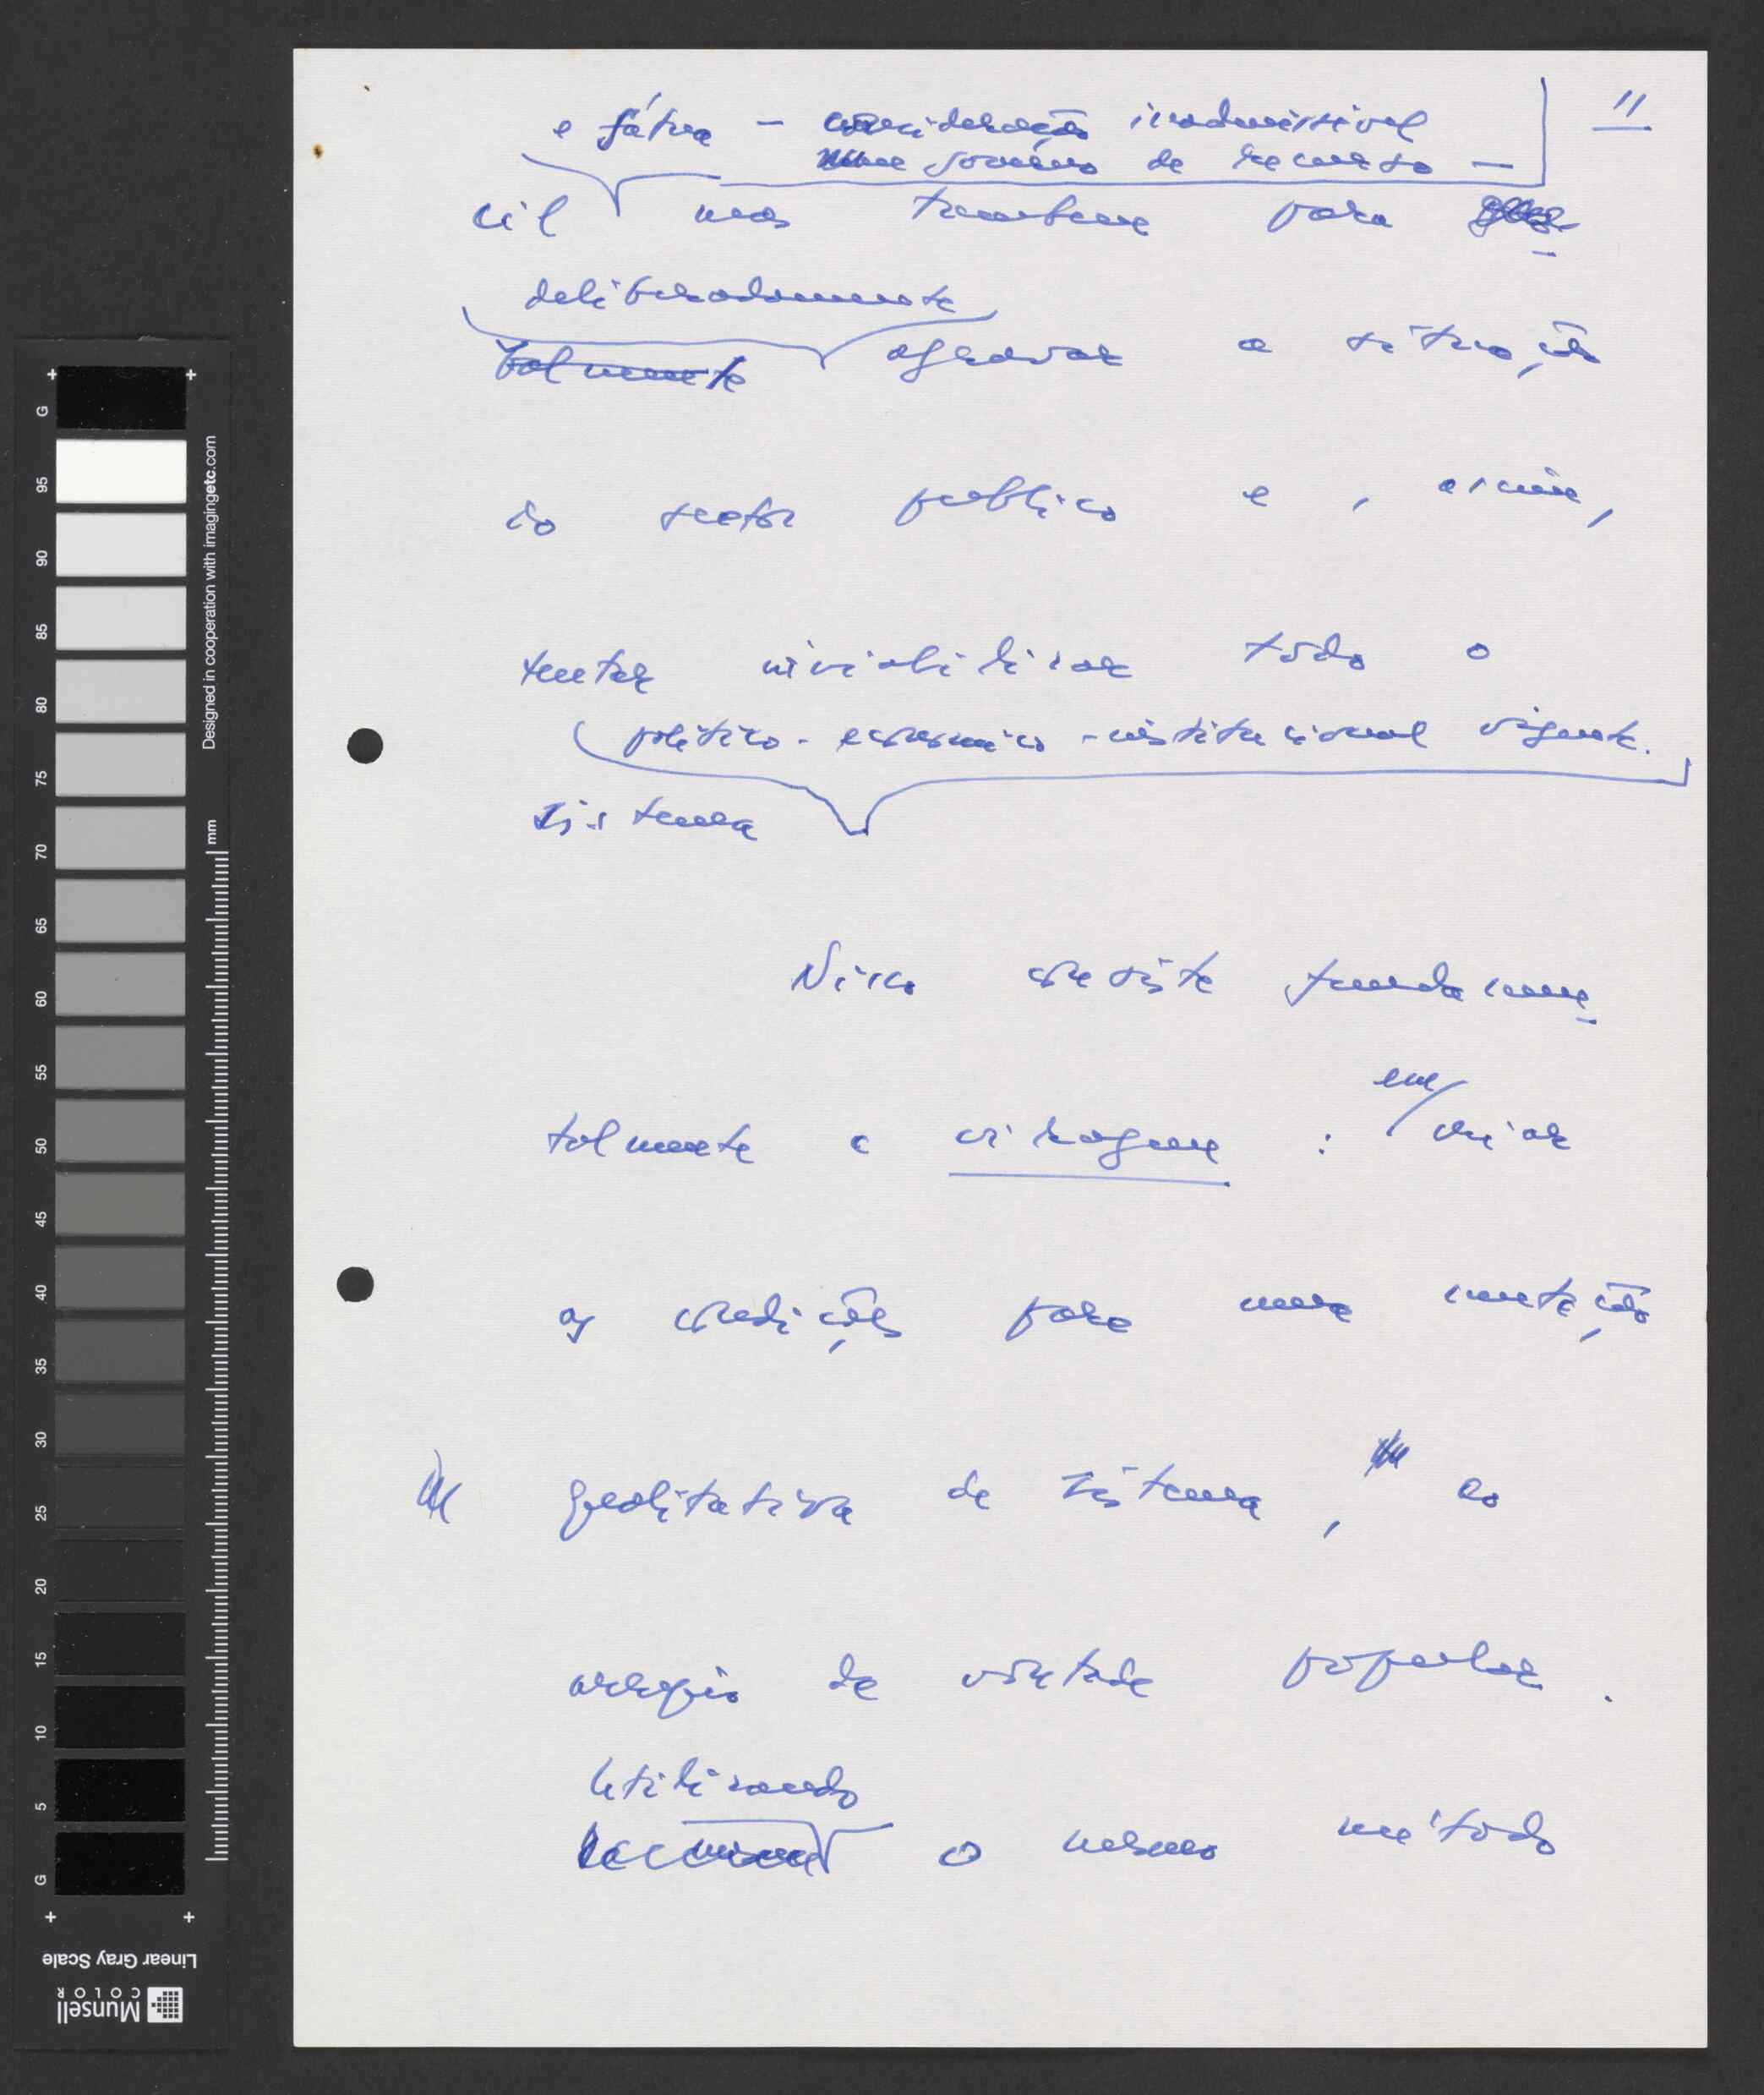 11
e fátua — consideração inadmissivel
num governo de recurso —
cil mas tambem para
deliberadamente
talmente agravar a situação
do sector publico e, assim,
tentar inviabilizar todo o
politico-economico-institucional vigente.
sistema
Nisso consiste fundamen
talmente a viragem : em criar
as condições para uma mutação
qualitativa de sistema, ao
arrepio da vontade popular.
Utilizando
o mesmo método
G 95 90 85 80 75 70 65 60 55 50 45 40 35 30 25 20 15 10 5 G
Designed in cooperation with imagingetc.com
mm
Linear Gray Scale
Munsell
COLOR